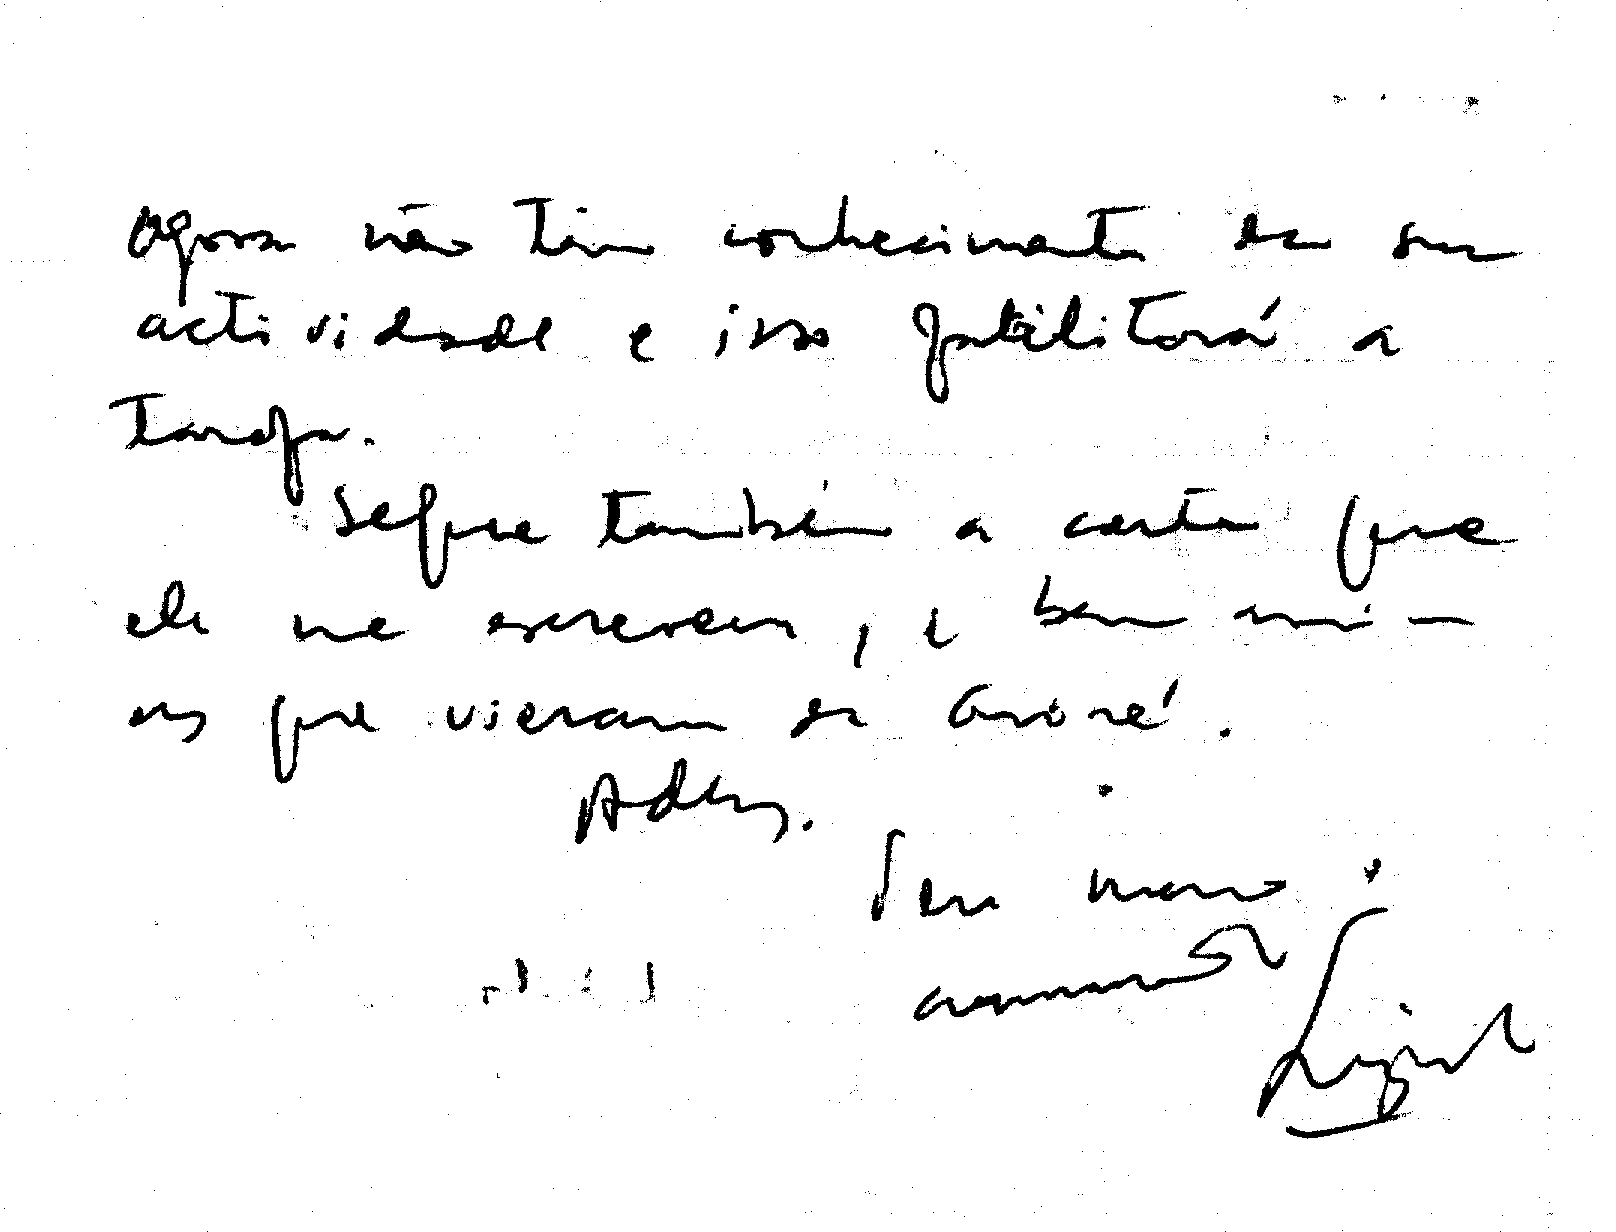 Agora não têm conhecimento da sua
actividade e isso facilitará a
tarefa.
Segue também a carta que
ele me escreveu, e bem assim
as que vieram da Guiné.
Adeus.
Seu mano